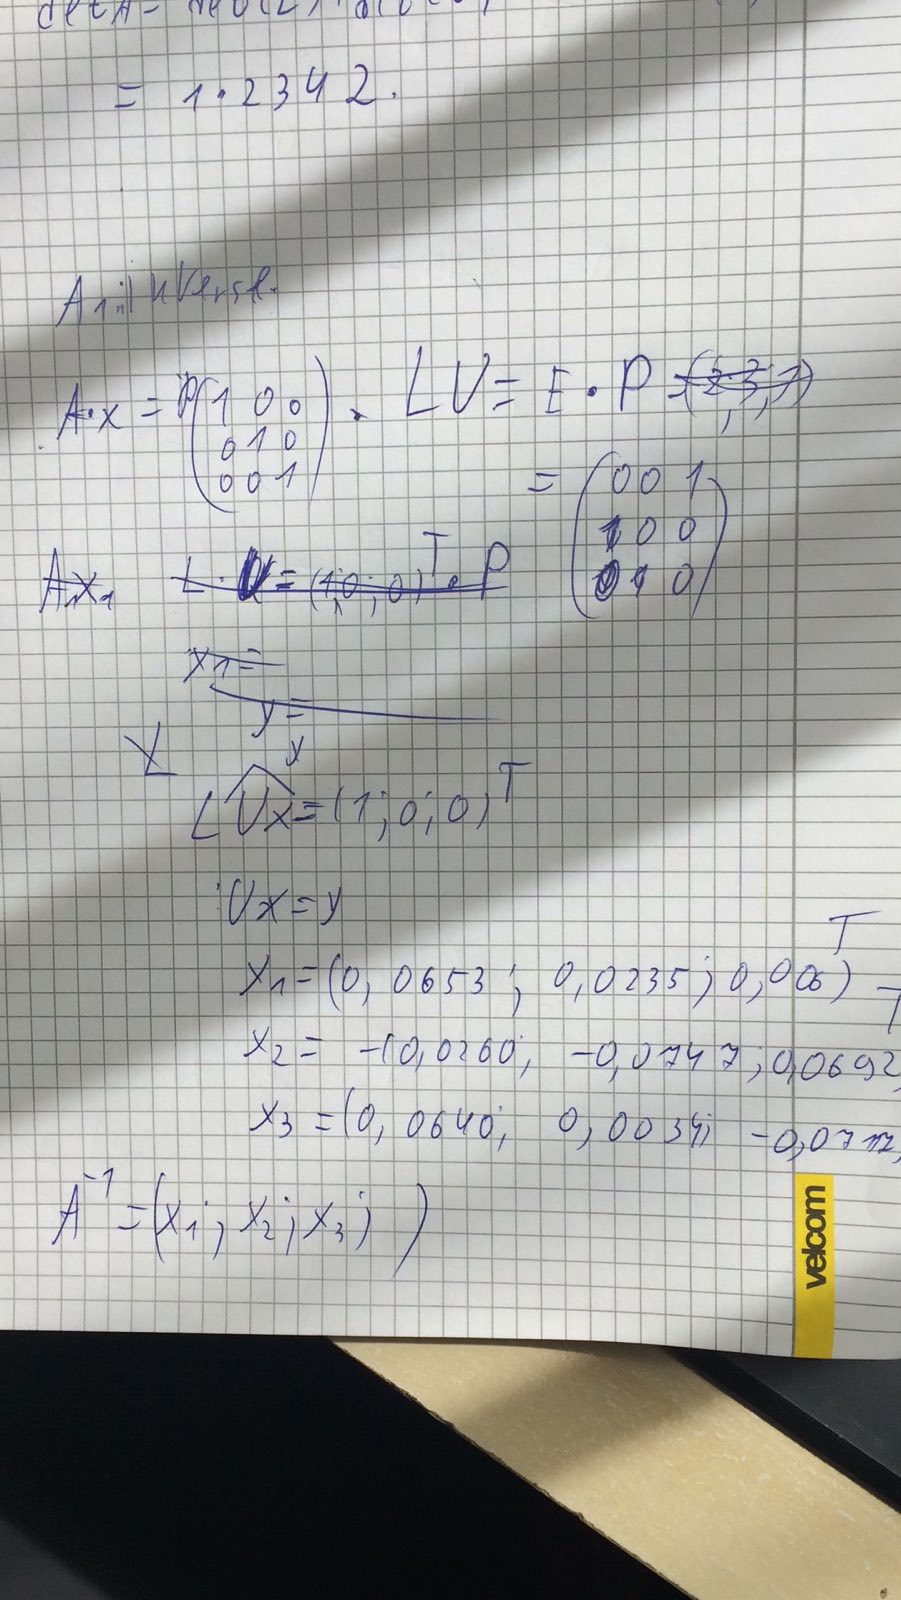 = 1·2342.
A·x = P(1 0 0
0 1 0
0 0 1) . LU = E · P
= (0 0 1
1 0 0
0 1 0)
y =
y
LUx = (1; 0; 0)T
Ux = y
x1 = (0,0653; 0,0235; 0,006)T
x2 = -(0,0260; -0,0747; 0,0692
x3 = (0,0640; 0,0034;
A-1 = (x1; x2; x3; )
velcom